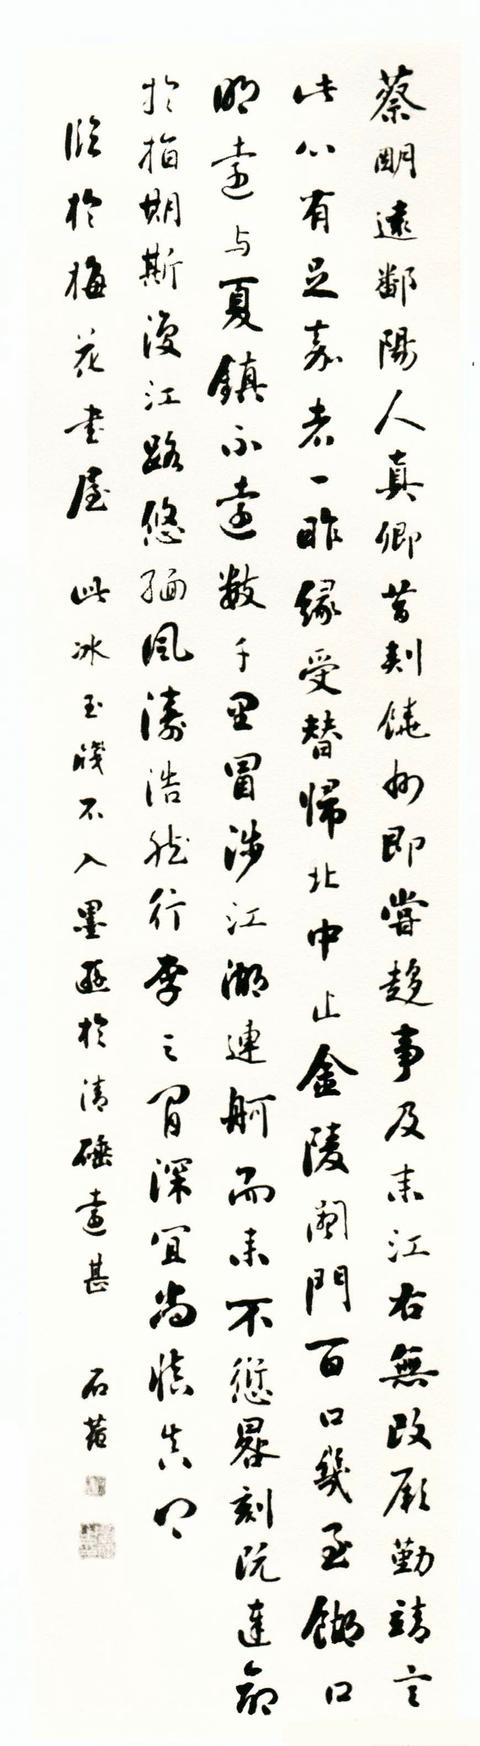 蔡明遠鄱陽人真卿昔刾饒州即嘗趍事及来江右無改厥勤靖言
此心有足嘉者一昨緣受替歸北中止金陵闔門百口幾至餬口
明遠与夏鎮不遠數千里冒涉江湖連舸而来不愆晷刻既達命
於指期斯復江路悠緬風濤浩然行李之間深宜尚慎真卿
臨於梅花書屋 此冰玉牋不入墨遜於清硾遠甚 石菴